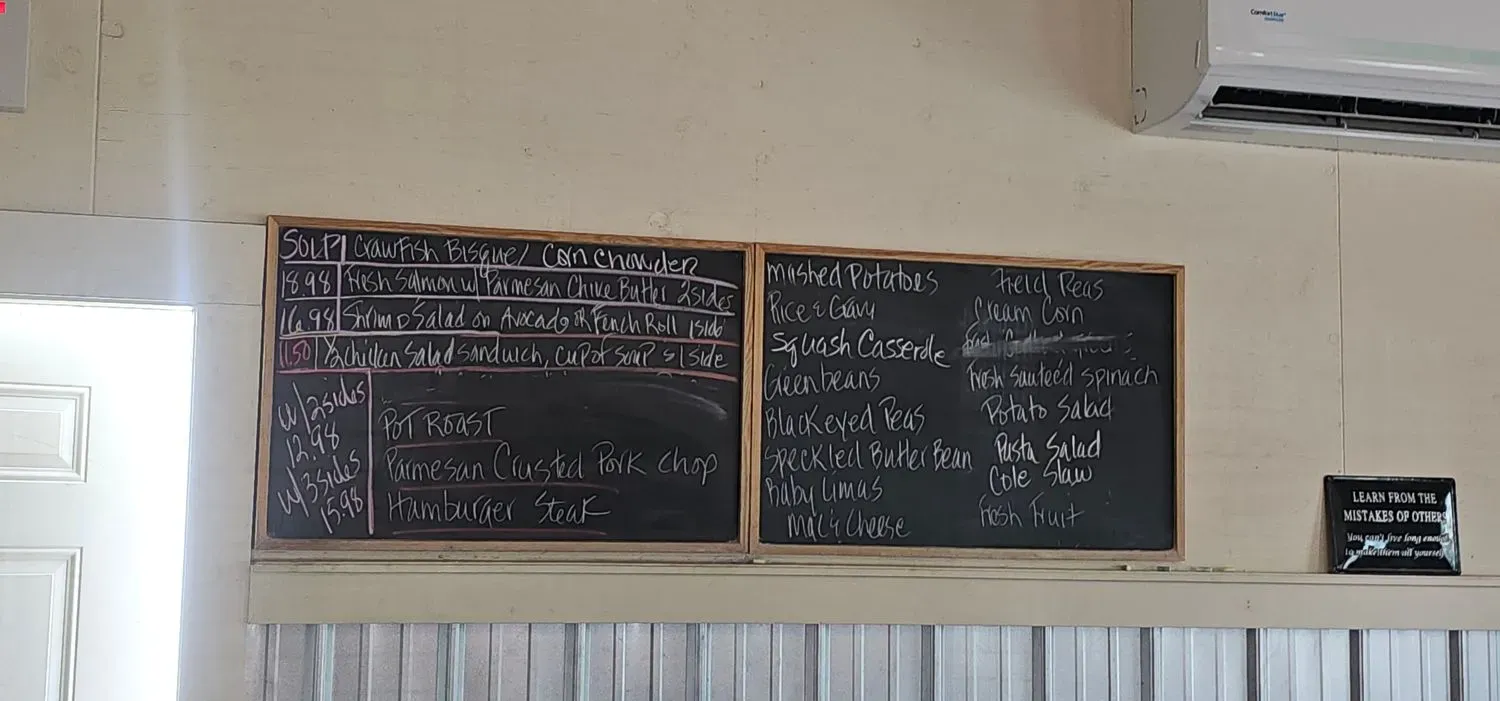 ComfortStar
SOUP Crawfish Bisque / Corn Chowder
18.98 Fresh Salmon w/ Parmesan Chive Butter 2 sides
16.98 Shrimp Salad on Avocado or Fench Roll 1 side
11.50 1/2 chicken Salad Sandwich, cup of soup & 1 side
w/2sides
12.98
w/3sides
15.98
POT ROAST
Parmesan Crusted Pork Chop
Hamburger Steak
Mashed Potatoes
Rice & Gravy
Squash Casserole
Greenbeans
Blackeyed Peas
Speckled Butter Bean
Baby Limas
Mac & Cheese
Field Peas
Cream Corn
Fresh Sauteed Spinach
Potato Salad
Pasta Salad
Cole Slaw
Fresh Fruit
LEARN FROM THE
MISTAKES OF OTHERS
You can't live long enough
to make them all yourself